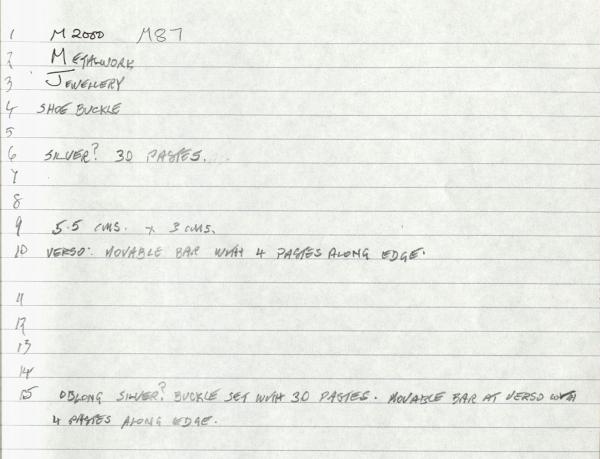 1 M2000 M87
2 METALWORK
3 JEWELLERY
4 SHOE BUCKLE
5
6 SILVER? 30 PASTES.
7
8
9 5.5 CMS. x 3 CMS.
10 VERSO: MOVABLE BAR WITH 4 PASTES ALONG EDGE.
11
12
13
14
15 OBLONG SILVER? BUCKLE SET WITH 30 PASTES. MOVABLE BAR AT VERSO WITH
4 PASTES ALONG EDGE.